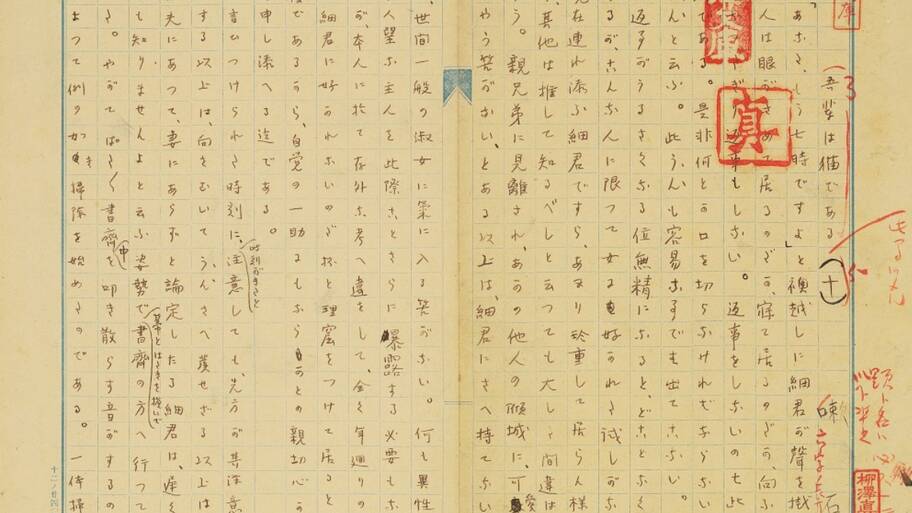 (吾輩は猫である (十)
漱石
「あなた、もう七時ですよ」と襖越しに細君が聲を掛
人は眼がさめて居るのだか、寐て居るのだか、向ふ
ぎり返事もしない。返事をしないのは此
である。是非何とか口を切らなければならない
んと云ふ。此うんも容易な事では出てこない。
返事がうるさくなる位無精になると、どことなく
るが、こんな人に限つて女に好かれた試しがな
現在連れ添ふ細君ですら、あまり珍重して居らん様
其他は推して知るべしと云つても大した間違は
う。親兄弟に見離され、あかの他人の傾城に、可愛
やう筈がない、とある以上は、細君にさへ持てない
世間一般の淑女に氣に入る筈がない。何も異性
人望な主人を此際ことさらに暴露する必要もな
が、本人に於て存外な考へ違をして、全く年廻りの
細君に好かれないのだ抔と理窟をつけて居ると
であるから、自覺の一助にもならうかとの親切心か
申し添へる迄である。
言ひつけられた時刻に、時刻がきたと注意しても、先方が其注意
する以上は、向をむいてうんさへ發せざる以上は
夫にあつて、妻にあらずと論定したる細君は、遲く
も知りませんよと云ふ姿勢で箒とはたきを擔いで書齋の方へ行つて
た。やがてぱたく書齋中を叩き散らす音がするの
よつて例の如き掃除を始めたのである。一体掃